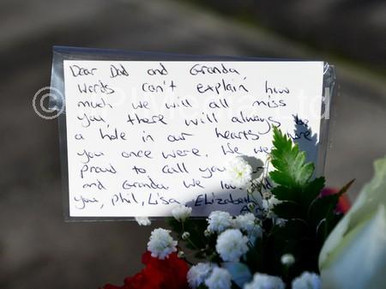 Dear Dad and Granda,
words can't explain how
much we will all miss
you, there will always be
a hole in our hearts where
you once were. We were
proud to call you
and Granda we love
you, Phil, Lisa, Elizabeth